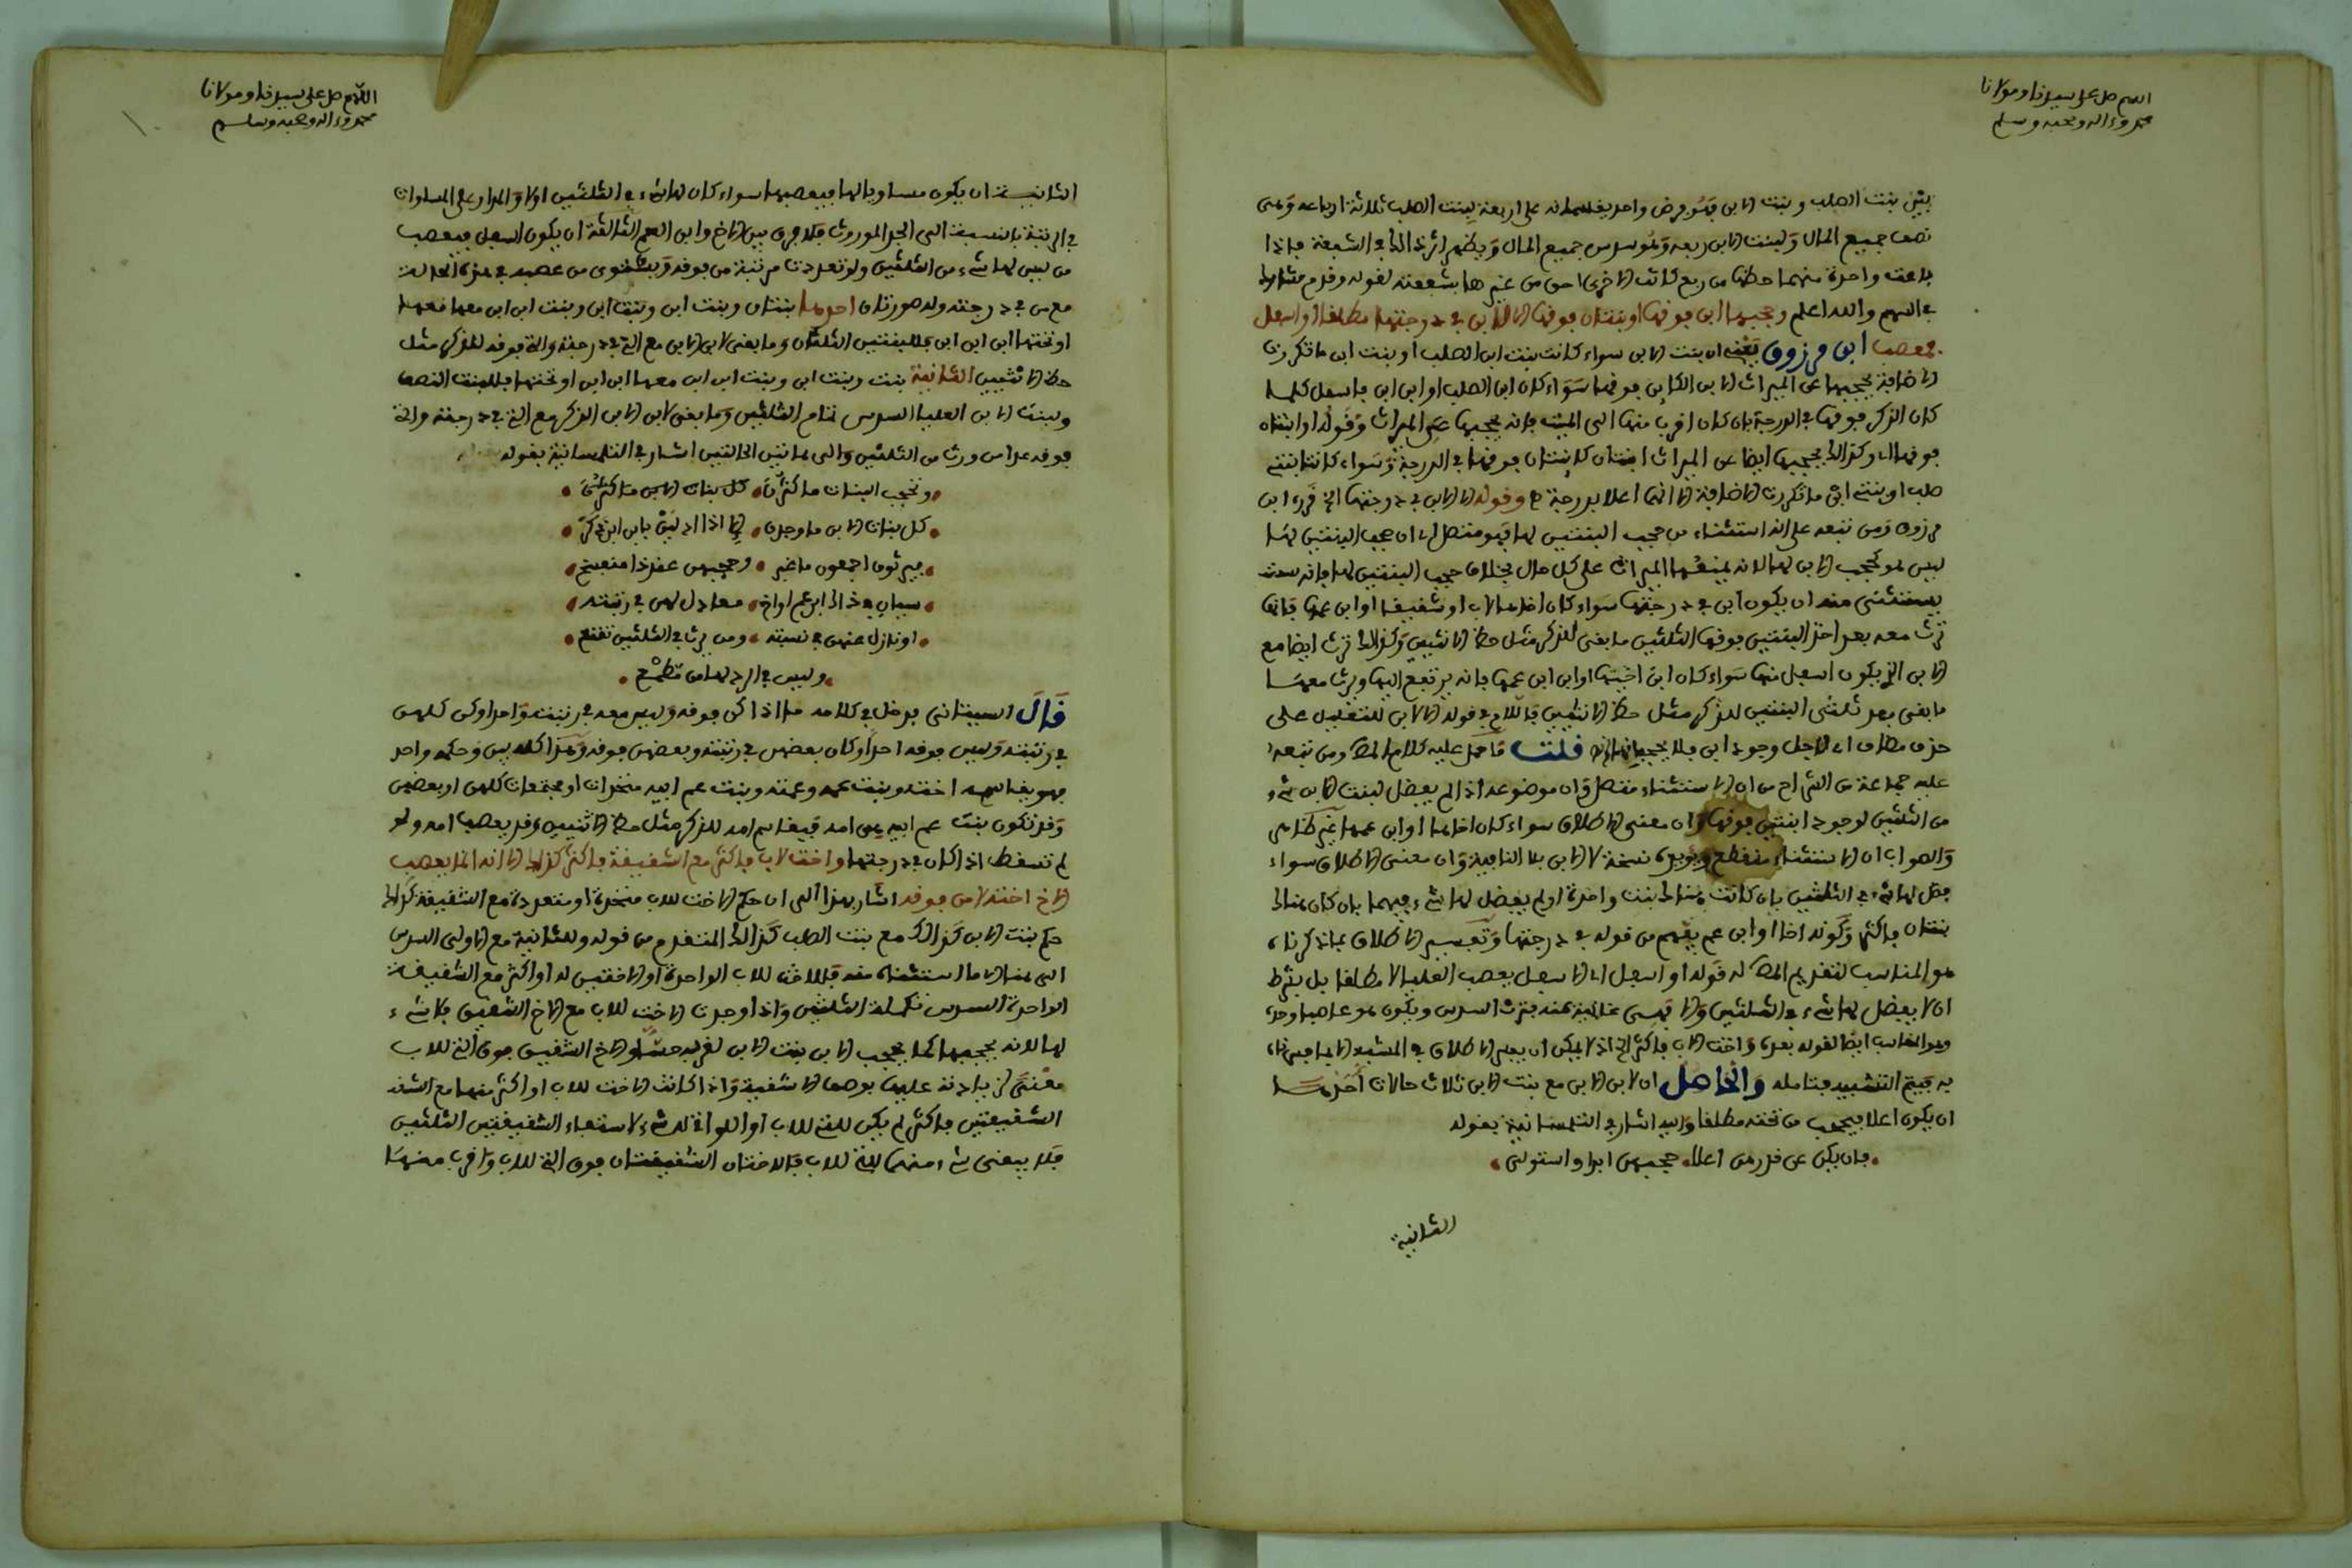 اللهم صل على سيدنا ومولانا
محمد وءاله وصحبه وسلم
بين بنت الصلب وبنت الابن فهو فرض واحد يقسمانه على اربعة لبنت الصلب ثلاثة ارباعه وهي
نصف جميع المال ولبنت الابن ربعه وهو سدس جميع المال ويظهر اثر ذلك في الشفعة فاذا
باعت واحدة منهما حظها من ربع كانت الاخرى احق من غيرها بشفعته لقوله وقدم مشارك
في السهم والله اعلم وحجبها ابن فوقها او بنتان فوقها الا الابن في درجتها مطلقا او اسفل
فمعصب ابن مرزوق يعني ان بنت الابن سواء كانت بنت ابن الصلب او بنت ابن ما تكررت
الاضافة يحجبها عن الميراث الابن الكاين فوقها سواء كان ابن الصلب او ابن ابن فاسفل كلما
كان الذكر فوقها في الدرجة بان كان اقرب منها الى الميت فانه يحجبها عن الميراث وقوله او ابنتان
فوقها اي وكذلك يحجبها ايضا عن الميراث ابنتان كاينتان فوقها في الدرجة وسواء كانتا بنتي
صلب او بنتي ابن ما تكررت الاضافة الا انهما اعلا بدرجة وقوله الا الابن في درجتها الخ قرره ابن
مرزوق ومن تبعه على انه استثناء من حجب البنتين لها فهو متصل اي ان حجب البنتين لها
ليس هو كحجب الابن لها لانه يمنعها الميراث على كل حال بخلاف حجب البنتين لها فانه
يستثنى منه ان يكون ابن في درجتها سواء كان اخا لها لاب او شقيقا او ابن عمها فانها
ترث معه بعد اخذ البنتين فوقها الثلثين ما بقي للذكر مثل حظ الانثيين وكذلك ترث ايضا مع
الابن الذي يكون اسفل منها سواء كان ابن اخيها او ابن ابن عمها فانه يرتفع اليها ويرث معها
ما بقي بعد ثلثي البنتين للذكر مثل حظ الانثيين فاللام في قوله الا الابن للتعليل على
حذف مضاف اي لاجل وجود ابن فلا يحجبانها قلت ما حمل عليه كلام المص ومن تبعه
عليه جماعة من الشراح من ان الاستثناء متصل وان موضوعه اذا لم يفضل لبنت الابن شيء
من الثلثين لوجود ابنتين فوقها وان معنى الاطلاق سواء كان اخا لها او ابن عمها غير ظاهر
والصواب ان الاستثناء منقطع ويؤيده نسخة لا الابن بلا النافية وان معنى الاطلاق سواء
فضل لها شيء في الثلثين بان كانت هناك بنت واحدة او لم يفضل لها شيء فيهما بان كان هناك
بنتان فاكثر وكونه اخا او ابن عم يفهم من قوله في درجتها وتفسير الاطلاق بما ذكرناه
هو المناسب لتقديم المص له قوله او اسفل اي الاسفل يعصب العليا لا مطلقا بل بشرط
ان لا يفضل لها شيء في الثلثين والا فهي غنية عنه بترث السدس ويكون هو عاصبا وحده
وهو المناسب ايضا لقوله بعده واخت لاب فاكثر الخ اذ لا يمكن ان يجري الاطلاق في المشبه الا بما فسرناه
به فيتم التشبيه فتامله والحاصل ان لابن الابن مع بنت الابن ثلاث حالات احدهما
ان يكون اعلا فيحجب من تحته مطلقا واليه اشار في التلمسانية بقوله
فان يكن عن قدرهن اعلا حجبهن ابدا واستولى
الثانية
اللهم صل على سيدنا ومولانا
محمد وءاله وصحبه وسلم
الثانية ان يكون مساويا لها فيعصبها سواء كان لها شيء في الثلثين او لا والمراد على المساوات
في الرتبة بالنسبة الى الجد الموروث فلا فرق بين الاخ وابن العم الثالثة ان يكون اسفل فيعصب
من ليس لها شيء من الثلثين ولو تعددت مرتبة من فوقه ويستوي من عصبه في هذه الحالة
مع من في درجته وله صورتان احدهما بنتان وبنت ابن وبنت ابن وبنت ابن ابن معها
او تحتها ابن ابن ابن فللبنتين الثلثان وما بقي لابن الابن مع التي في درجته والتي فوقه للذكر مثل
حظ الانثيين الثانية بنت وبنت ابن وبنت ابن ابن معها ابن ابن او تحتها فللبنت النصف
ولبنت الابن العليا السدس تمام الثلثين وما بقي لابن الابن الذكر مع التي في درجته والتي
فوقه عدا من ورث من الثلثين والى هاتين الحالتين اشار في التلمسانية بقوله
وتحجب البنات ما كثرن كل بنات الابن ما كثرن
كل بنات الابن ما وجدن الا اذا اد بابن ابن ذكر
فيرثون اجمعون ما غبر وحجبهن عند ذا منفسخ
سيان في ذاك ابن عم او اخ معادل لهن في رتبته
او نازل عنهن في نسبته ومن يرث في الثلثين تقنع
وليس في الرد لها من مطمع
قال السيتاني يدخل في كلامه ما اذا كن فوقه وليس معه في رتبته واحدا وكن كلهن
في رتبته وليس فوقه احد او كان بعضهن في رتبته وبعضهن فوقه وهذا كله بين وحكمه واحد
فهو يقاسم اخته وبنت عمه وعمته وبنت عم ابيه منفردات او مجتمعات كلهن او بعضهن
وقد تكون بنت عم ابيه هي امه فيقاسم امه للذكر مثل حظ الانثيين وقد يعصب امه ولو
لم تسقط اذا كان في درجتها واخت لاب فاكثر مع الشقيقة فاكثر كذلك الا انه انما يعصب
الاخ اخته لا من فوقه اشار بهذا الى ان حكم الاخت للاب متحدة او متعددة مع الشقيقة كذلك
حكم بنت الابن كذلك مع بنت الصلب كذلك المتقدم من قوله وللثانية مع الاولى السدس
الى هنا الا ما استثناه منه فللاخت للاب الواحدة او الاختين له او اكثر مع الشقيقة
الواحدة السدس تكملة الثلثين واذا وجدت الاخت للاب مع الاخ الشقيق فلا شيء
لها لانه يحجبها كما يحجب الابن بنت الابن لقربه والاخ الشقيق فوق التي للاب
معنى لزيادته عليها بوصف الاشقية واذا كانت الاخت للاب او اكثر منها مع
الشقيقتين فاكثر لم يكن للتي للاب او اللواتي له شيء لاستيفاء الشقيقتين الثلثين
فلا يبقى شيء منهما للتي للاب فالاختان الشقيقتان فوق التي للاب واقرب منها